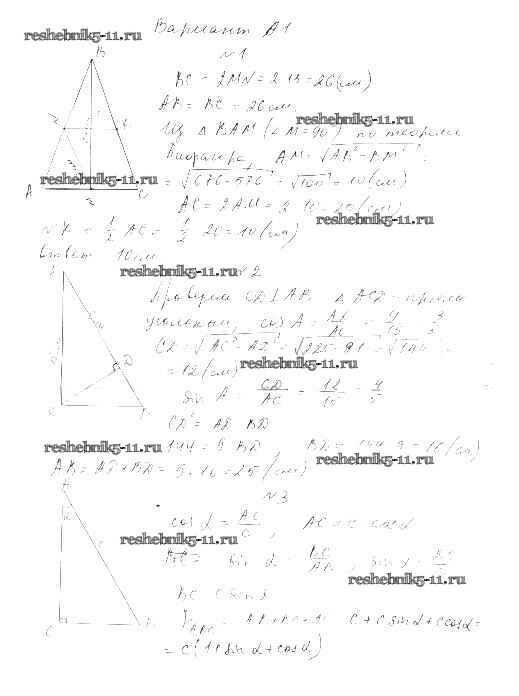 Вариант А1
reshebnik5-11.ru
№1
B
BC = 2MN = 2·13 = 26 (см)
AB = BC = 26 см
reshebnik5-11.ru
Из △ BAM (∠M = 90°) по теореме
Пифагора, AM = √AB² - BM² =
reshebnik5-11.ru
= √676-576 = √100 = 10 (см)
A
C
AC = 2AM = 2·10 = 20 (см)
reshebnik5-11.ru
NK = 1/2 AC = 1/2 · 20 = 10 (см)
Ответ 10 см
reshebnik5-11.ru
№2
Проведем CD ⊥ AB, △ ACD - прямо
угольный, cos A = AD/AC = 9/15 = 3/5
CD = √AC² - AD² = √225-81 = √144 =
reshebnik5-11.ru
= 12 (см)
D
sin A = CD/AC = 12/15 = 4/5
CD² = AD · BD
reshebnik5-11.ru
144 = 9 BD, BD = 144:9 = 16 (см)
reshebnik5-11.ru
AB = AD + BD = 9+16 = 25 (см)
№3
cos α = AC/C, AC = c cos α
reshebnik5-11.ru
sin α = BC/AB, sin α = BC/
reshebnik5-11.ru
BC = c sin α
C
P ABC = c + c sin α + c cos α =
= c (1 + sin α + cos α)